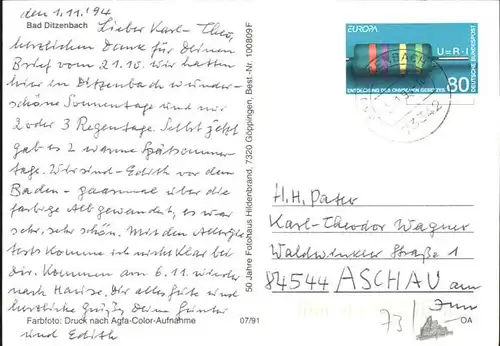 den 1.11.'94
Bad Ditzenbach
Lieber Karl-Theo,
herzlichen Dank für Deinen
Brief vom 21.10. Wir hatten
hier in Ditzenbach wunder-
schöne Sonnentage und nur
2 oder 3 Regentage. Selbst jetzt
gab es 2 warme Spätsommer
tage. Wir sind - Edith vor dem
Baden - quasimal über die
farbige Alb gewandert, es war
sehr, sehr schön. Mit den
tests komme ich nicht klar bei
Dir. Kommen am 6.11. wieder
nach Hause. Dir alles Gute und
herzliche Grüße Deine Günter
und Edith
Farbfoto: Druck nach Agfa-Color-Aufnahme
07/91
50 Jahre Fotohaus Hildenbrand, 7320 Göppingen, Best.-Nr. 100809 F
EUROPA
U=R·I
ENTDECKUNG DES OHMSCHEN GESETZES
80
DEUTSCHE BUNDESPOST
73342
H.H. Pater
Karl-Theodor Wagner
Waldwinkler Straße 1
84544 ASCHAU am
Inn
73/
OA